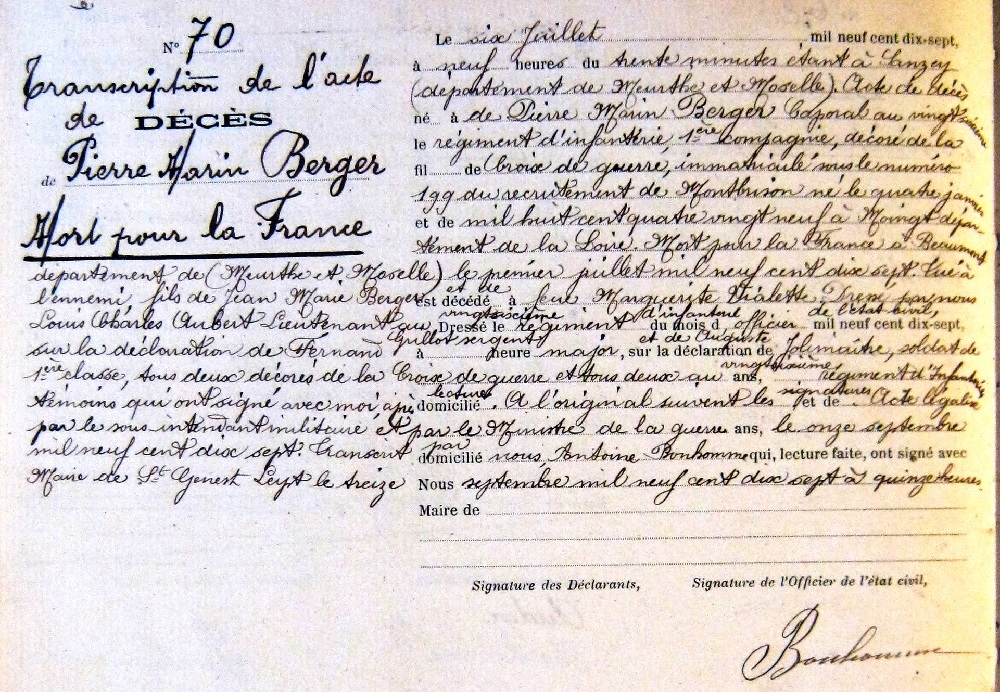 N° 70
Transcription de l'acte
de DÉCÈS
de Pierre Marin Berger
Mort pour la France
Le six Juillet mil neuf cent dix-sept,
à neuf heures du trente minutes étant à Sanzey
(département de Meurthe et Moselle). Acte de décès
né à de Pierre Marin Berger Caporal au vingt sixième
le régiment d'infanterie, 1ère compagnie, décoré de la
fil de Croix de guerre, immatriculé sous le numéro
199 du recrutement de Montbrison né le quatre janvier
et de mil huit cent quatre vingt neuf à Moingt dépar-
tément de la Loire. Mort pour la France à Beaumont
département de (Meurthe et Moselle) le premier juillet mil neuf cent dix sept. Tué à
l'ennemi, fils de Jean Marie Berger et de est décédé à feue Marguerite Vialette. Dressé par nous
Louis Charles Aubert Lieutenant au vingtsixième Dressé le régiment d'infanterie du mois d officier de l'état civil, mil neuf cent dix-sept,
sur la déclaration de Fernand Grillot sergent à heure major, et de Auguste sur la déclaration de Jolimaître, soldat de
1ère classe, tous deux décorés de la Croix de guerre et tous deux au vingtsixième ans, régiment d'Infanterie
témoins qui ont signé avec moi après lecture domicilié. A l'original suivent les signatures et de. Acte légalisé
par le sous intendant militaire et par le Ministre de la guerre ans, le onze septembre
mil neuf cent dix sept. Transcrit par domicilié nous, Antoine Bonhomme qui, lecture faite, ont signé avec
Maire de St Genest Lerpt le treize Nous septembre mil neuf cent dix sept à quinze heures
Maire de
Signature des Déclarants, Signature de l'Officier de l'état civil,
Bonhomme